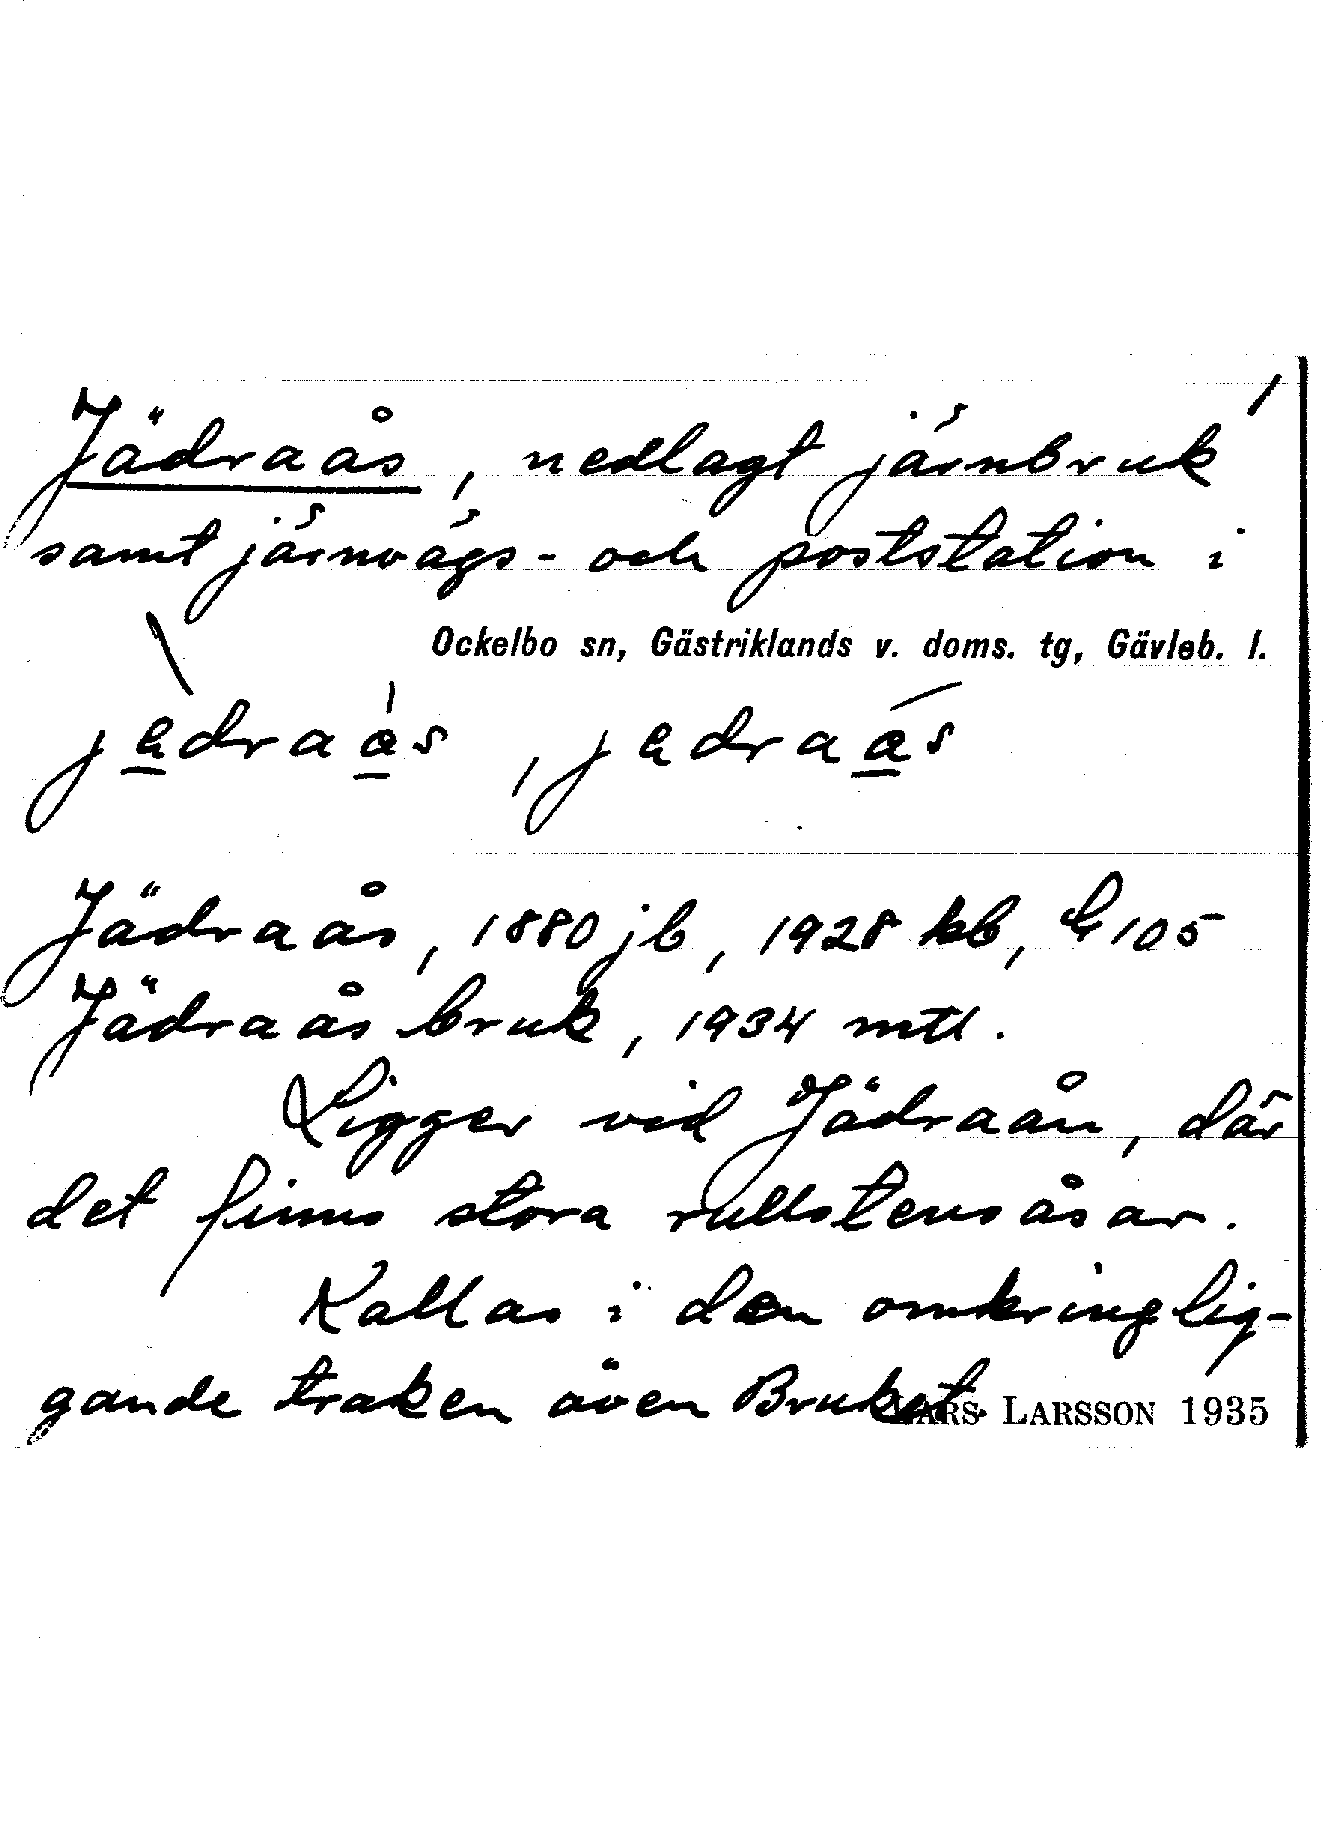 1
Jädraås, nedlagt järnbruk
samt järnvägs- och poststation i
Ockelbo sn, Gästriklands v. doms. tg, Gävleb. l.
jädraås, jädraås
Jädraås, 1880 jb, 1928 kb, G 105
Jädraås bruk, 1934 mtl.
Ligger vid Jädraån, där
det finns stora rullstensåsar.
Kallas i den omkringlig-
gande traken även Bruket.
LARS LARSSON 1935